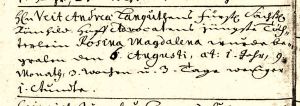 H. Veit Andreæ Languthens fürstl. Sächß.
Hoff Advocatens jüngste Töch-
terlein Rosina Magdalena wurde be-
graben den 6. Augusti, æt. 1. Jahr, 9.
Monath, 2. wochen u. 3. Tage weniger
1. Stunde.